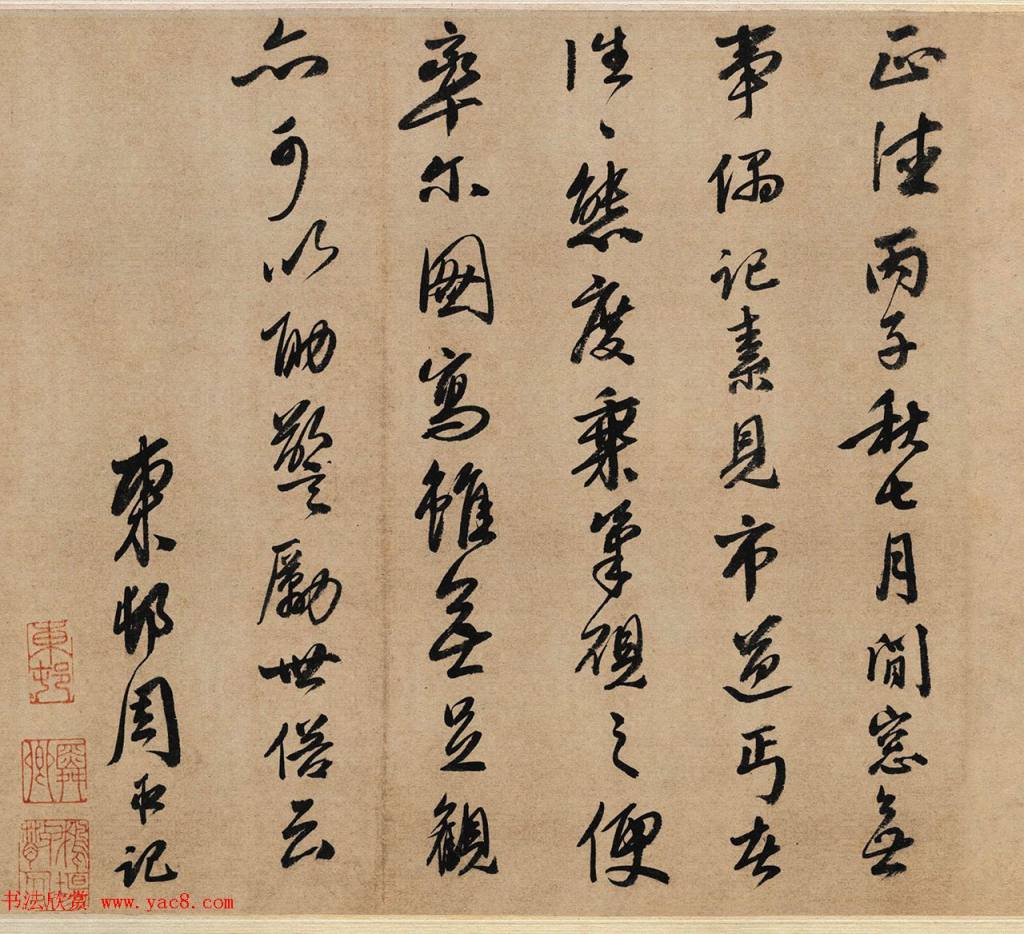 正德丙子秋七月閒窓無
事偶記素見市道丐者
往々態度乘筆硯之便
率尔圖寫雖無足觀
亦可以助警勵世俗云
東邨周臣記
東邨
舜卿
鶴場散人
书法欣赏 www.yac8.com